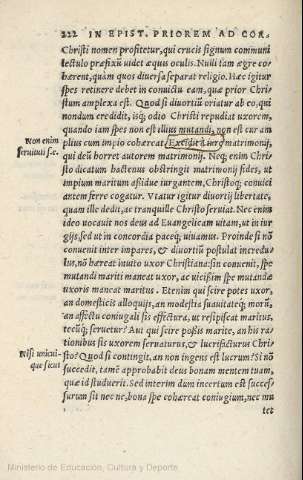 222 IN EPIST. PRIOREM AD COR.
Christi nomen profitetur, qui crucis signum communi
lectulo præfixũ uidet æquis oculis. Nulli tam ægre co-
hærent, quàm quos diuersa separat religio. Hæc igitur
spes retinere debet in conuictu eam, quæ prior Chri-
stum amplexa est. Quod si diuortiũ oriatur ab eo, qui
nondum credidit, isq́; odio Christi repudiat uxorem,
quando iam spes non est illius mutandi, non est cur am
Non enim
seruituti sc.
plius cum impio cohæreat. Excidit à iure matrimonij,
qui deũ horret autorem matrimonij. Neq; enim Chri-
sto dicatum hactenus obstringit matrimonij fides, ut
impium maritum assidue iurgantem, Christoq́; conuici
antem ferre cogatur. Vtatur igitur diuortij libertate,
quam ille dedit, ac tranquille Christo seruiat. Nec enim
ideo uocauit nos deus ad Euangelicam uitam, ut in iur
gijs, sed ut in concordia paceq́; uiuamus. Proinde si nõ
conuenit inter impares, & diuortiũ postulat incredu-
lus, nõ hæreat inuito uxor Christiana: sin conuenit, spe
mutandi mariti maneat uxor, ac uicißim spe mutandæ
uxoris maneat maritus. Etenim qui scire potes uxor,
an domesticis alloquijs, an modestia suauitateq́; morũ,
an affectu coniugali sis effectura, ut resipiscat maritus,
tecũq́; seruetur? Aut qui scire poßis marite, an his ra-
tionibus sis uxorem seruaturus, & lucrifacturus Chri-
Nisi unicui-
que sicut
sto? Quod si contingit, an non ingens est lucrum? Si nõ
succedit, tamẽ approbabit deus bonam mentem tuam,
quæ id studuerit. Sed interim dum incertum est succes-
surum sit nec ne, bona spe cohæreat coniugium, nec mu
tet
Ministerio de Educación, Cultura y Deporte